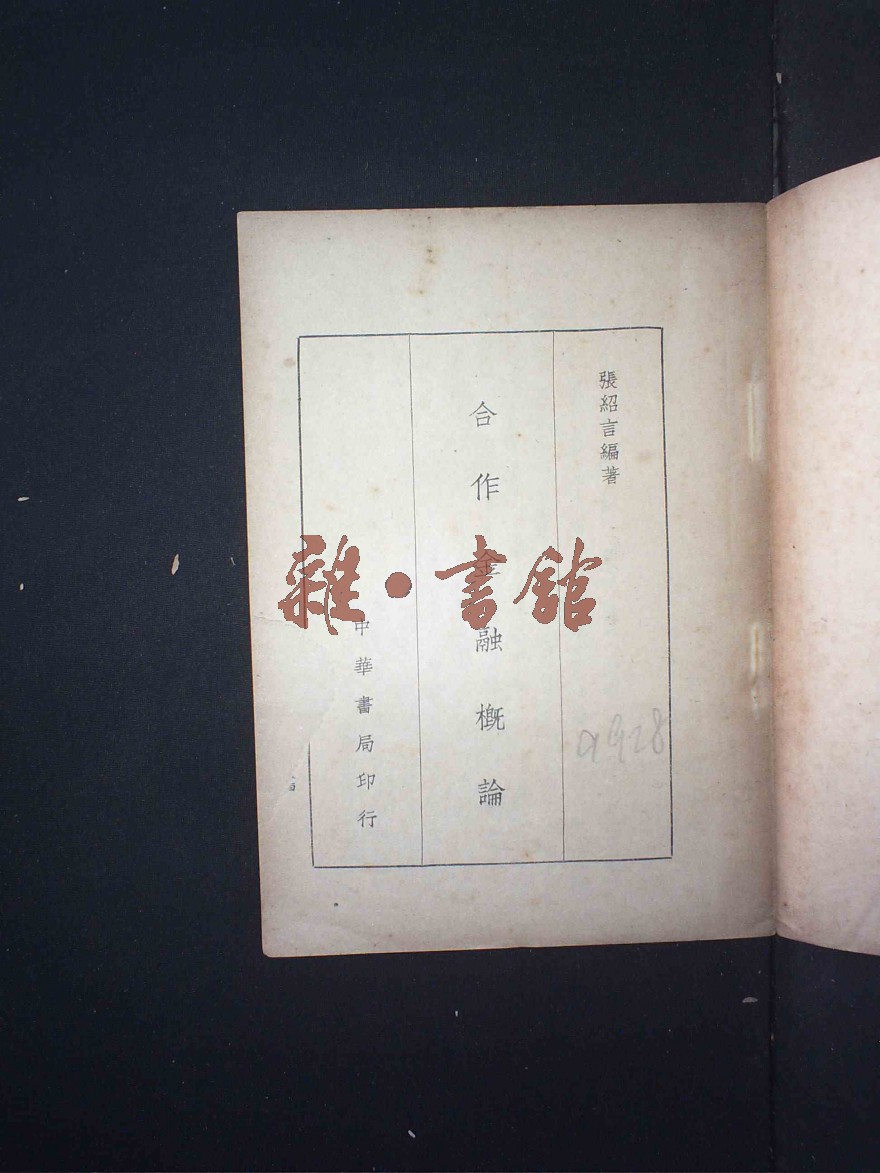 張紹言編著
合作金融概論
中華書局印行
雜·書館